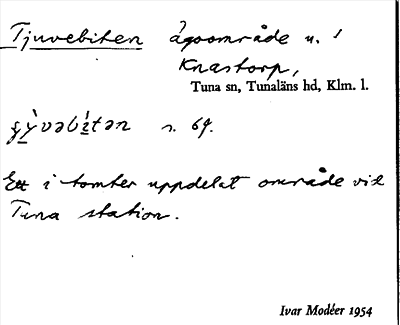 Tjuvebiten ägoområde u. 1
Knastorp,
Tuna sn, Tunaläns hd, Klm. l.
s. 69.
Ett i tomter uppdelat område vid
Tuna station.
Ivar Modéer 1954